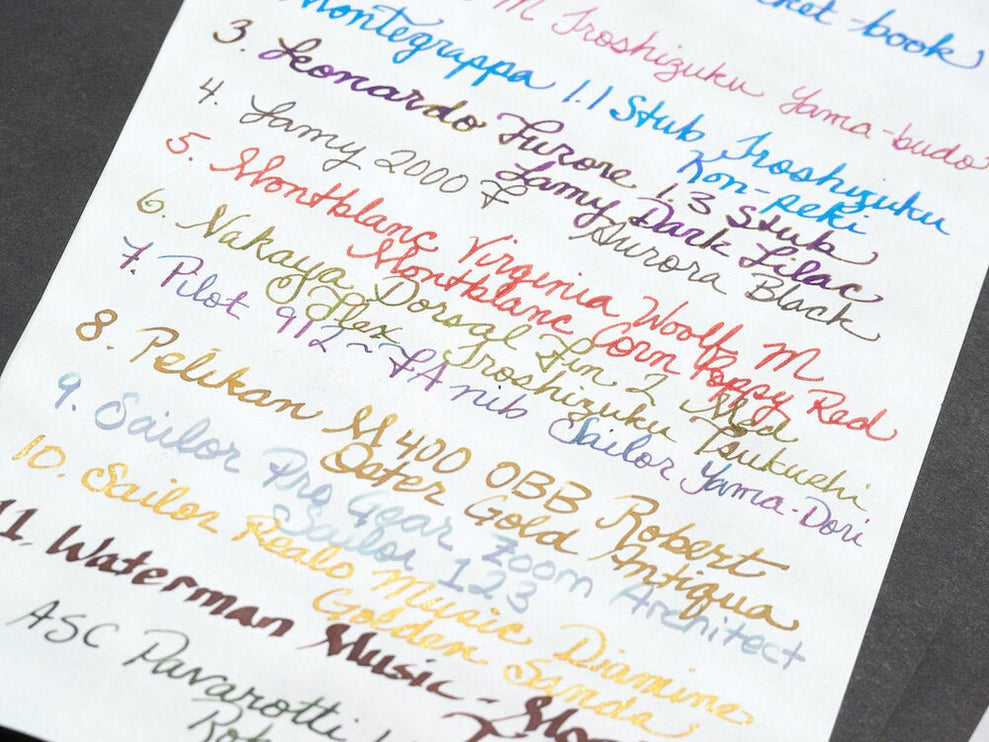 ket-book
M Iroshizuku Yama-budo
Montegrappa 1.1 Stub Iroshizuku
Kon-peki
3. Leonardo Furore 1.3 Stub
Lamy Dark Lilac
4. Lamy 2000 F
Aurora Black
5. Montblanc Virginia Woolf M
Montblanc Corn Poppy Red
6. Nakaya Dorsal Fin 2 Med
Flex Iroshizuku Tsukushi
7. Pilot 912~FA nib Sailor Yama-Dori
8. Pelikan M400 OBB Robert
Oster Gold Antiqua
9. Sailor Pro Gear Zoom Architect
Sailor 123
10. Sailor Realo Music Diamine
Golden Sands
11. Waterman Music - Mo
ASC Pavarotti
Rob